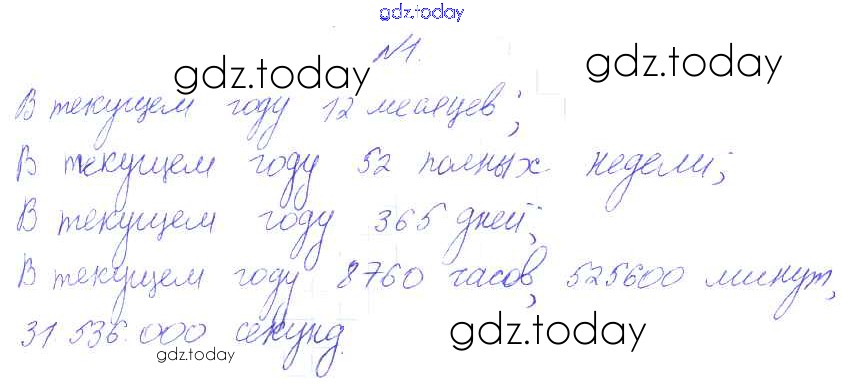 gdz.today
№1.
gdz.today gdz.today
В текущем году 12 месяцев;
В текущем году 52 полных недели;
В текущем году 365 дней;
В текущем году 8760 часов, 525600 минут,
31 536 000 секунд.
gdz.today gdz.today